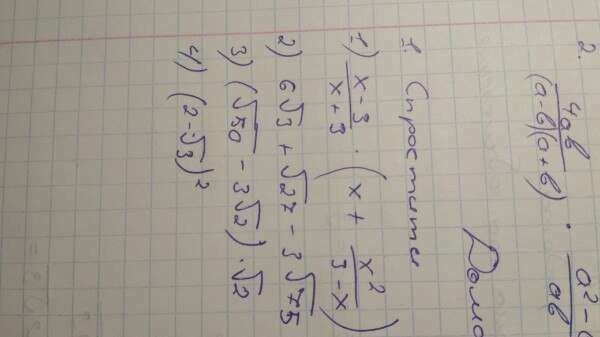 2. \frac{4ab}{(a-b)(a+b)} \cdot \frac{a^2-}{ab}
Дома
1. Спростити
1) \frac{x-3}{x+3} \cdot (x + \frac{x^2}{3-x})
2) 6\sqrt{3} + \sqrt{27} - 3\sqrt{75}
3) (\sqrt{50} - 3\sqrt{2}) \cdot \sqrt{2}
4) (2-\sqrt{3})^2